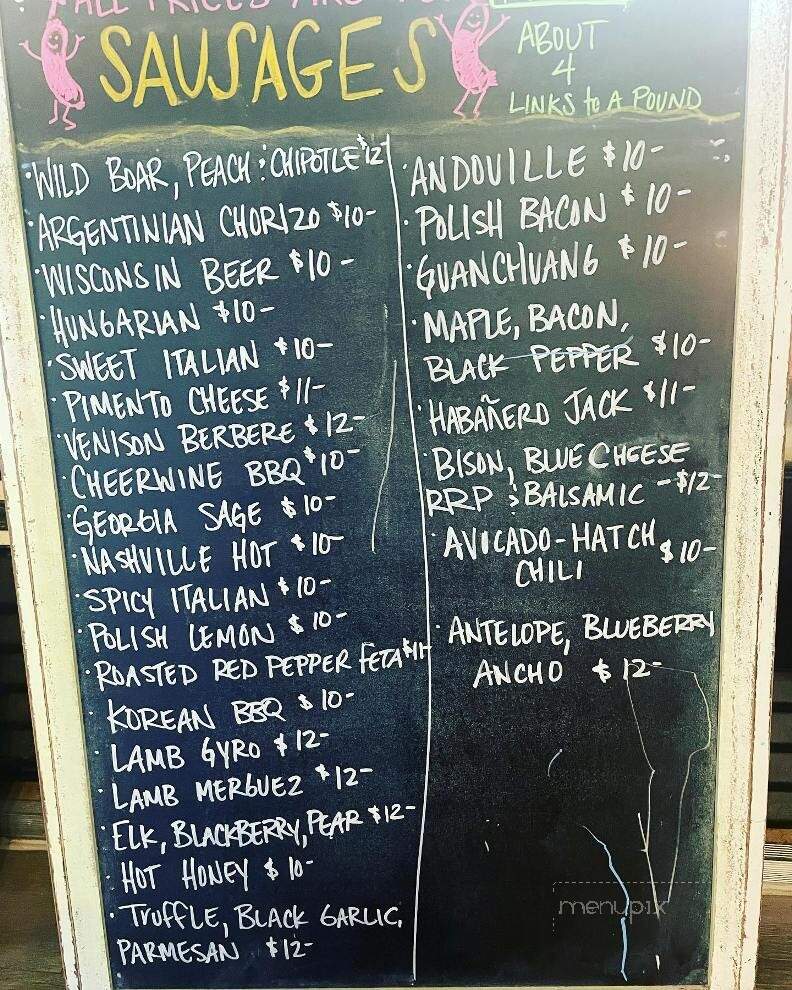 ALL PRICES ARE
SAUSAGES
ABOUT
4
LINKS to A POUND
· WILD BOAR, PEACH & CHIPOTLE $12
· ARGENTINIAN CHORIZO $10-
· WISCONSIN BEER $10-
· HUNGARIAN $10-
· SWEET ITALIAN $10-
· PIMENTO CHEESE $11-
· VENISON BERBERE $12-
· CHEERWINE BBQ $10-
· GEORGIA SAGE $10-
· NASHVILLE HOT $10-
· SPICY ITALIAN $10-
· POLISH LEMON $10-
· ROASTED RED PEPPER FETA $11-
· KOREAN BBQ $10-
· LAMB GYRO $12-
· LAMB MERGUEZ $12-
· ELK, BLACKBERRY, PEAR $12-
· HOT HONEY $10-
· TRUFFLE, BLACK GARLIC,
PARMESAN $12-
· ANDOUILLE $10-
· POLISH BACON $10-
· GUANCHUANG $10-
· MAPLE, BACON,
BLACK PEPPER $10-
· HABAÑERO JACK $11-
· BISON, BLUE CHEESE
RRP & BALSAMIC -$12-
· AVICADO-HATCH $10-
CHILI
· ANTELOPE, BLUEBERRY
ANCHO $12-
menupix